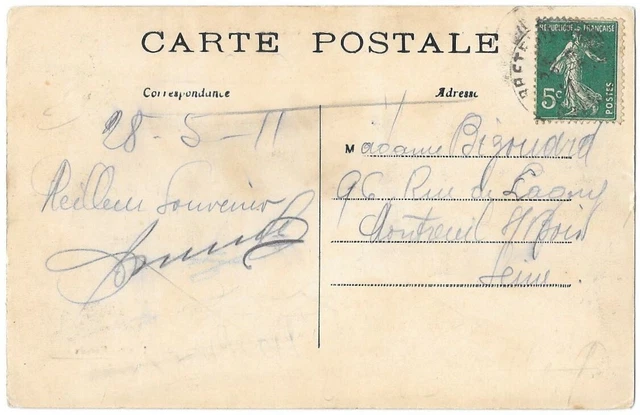 CARTE POSTALE
RÉPUBLIQUE FRANÇAISE
5c
POSTES
Correspondance
Adresse
28-5-11
Meilleur Souvenir
Madame Bigoudrd
96 Rue de Lagny
Montreuil s/Bois
Seine